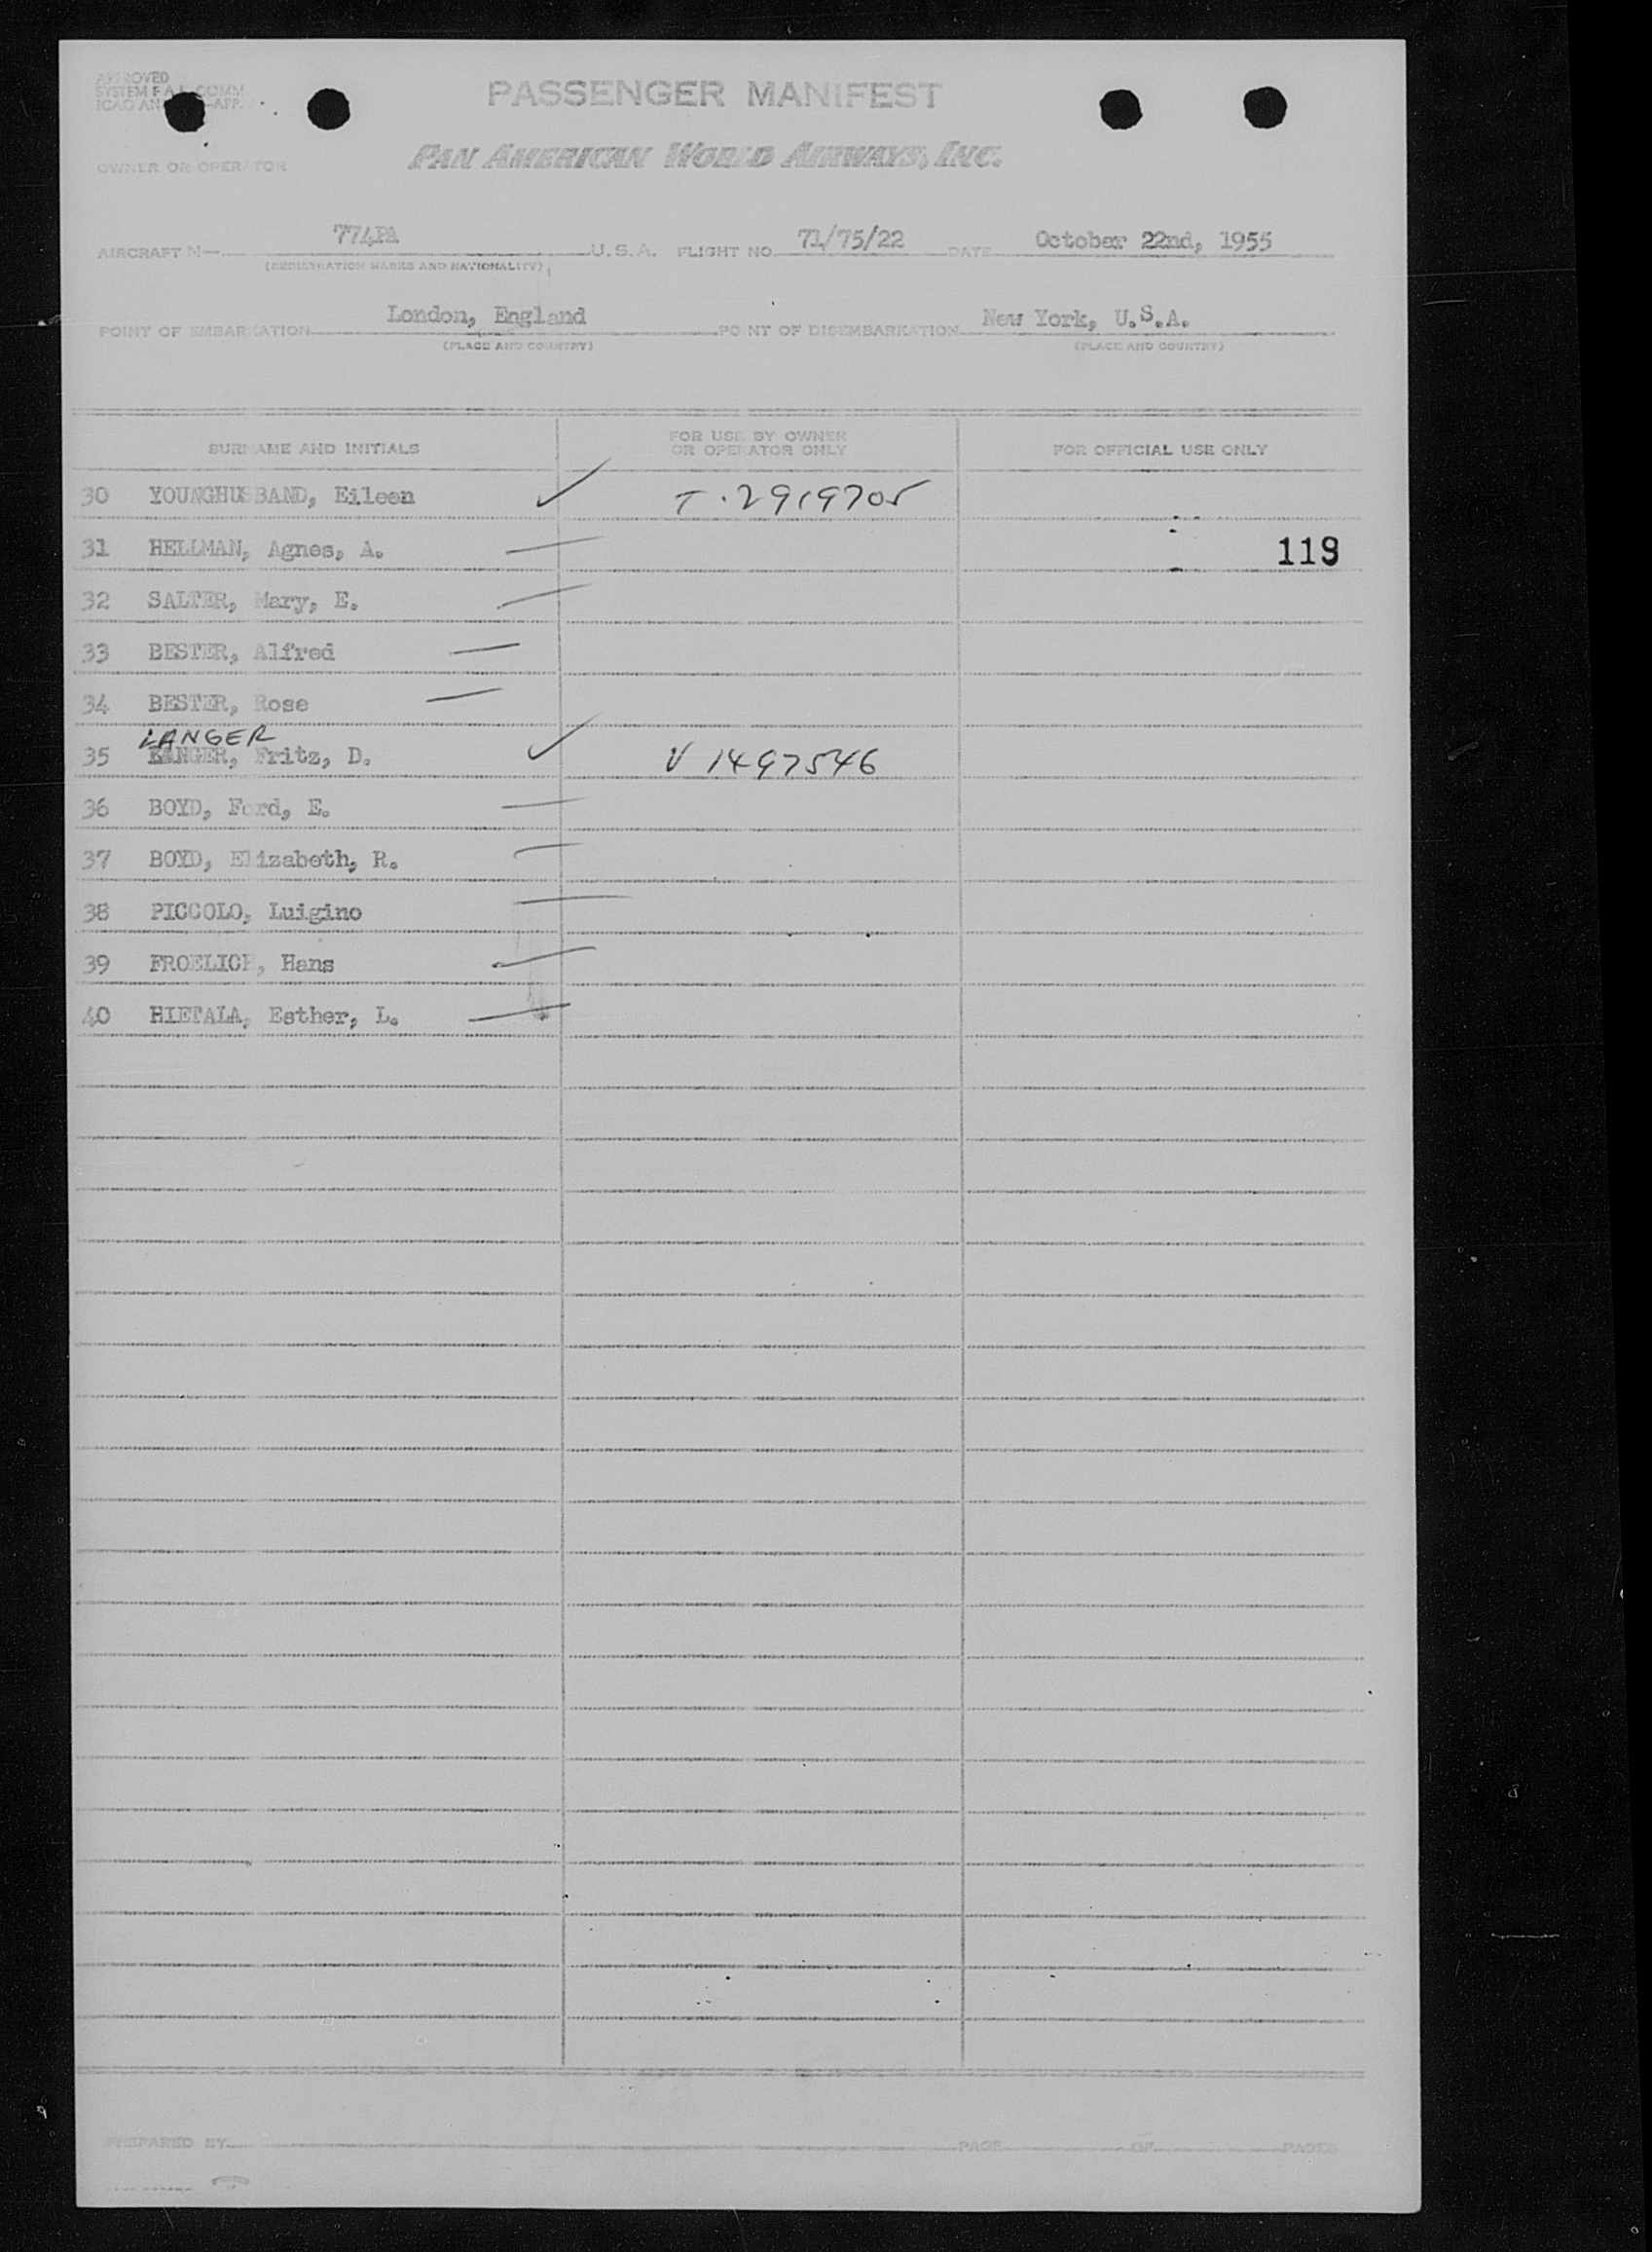 APPROVED
SYSTEM F.A.L. COMM.
ICAO AN APP.
PASSENGER MANIFEST
OWNER OR OPERATOR
PAN AMERICAN WORLD AIRWAYS, INC.
AIRCRAFT N— 774PA U.S.A. FLIGHT NO. 71/75/22 DATE October 22nd, 1955
(REGISTRATION MARKS AND NATIONALITY)
POINT OF EMBARKATION London, England POINT OF DISEMBARKATION New York, U.S.A.
(PLACE AND COUNTRY) (PLACE AND COUNTRY)
SURNAME AND INITIALS FOR USE BY OWNER OR OPERATOR ONLY FOR OFFICIAL USE ONLY
30 YOUNGHUSBAND, Eileen T.2919705
31 HELLMAN, Agnes, A. 119
32 SALTER, Mary, E.
33 BESTER, Alfred
34 BESTER, Rose
LANGER
35 KANGER, Fritz, D. V 1497546
36 BOYD, Ford, E.
37 BOYD, Elizabeth, R.
38 PICCOLO, Luigino
39 FROELICH, Hans
40 HIETALA, Esther, L.
PREPARED BY PAGE OF PAGES